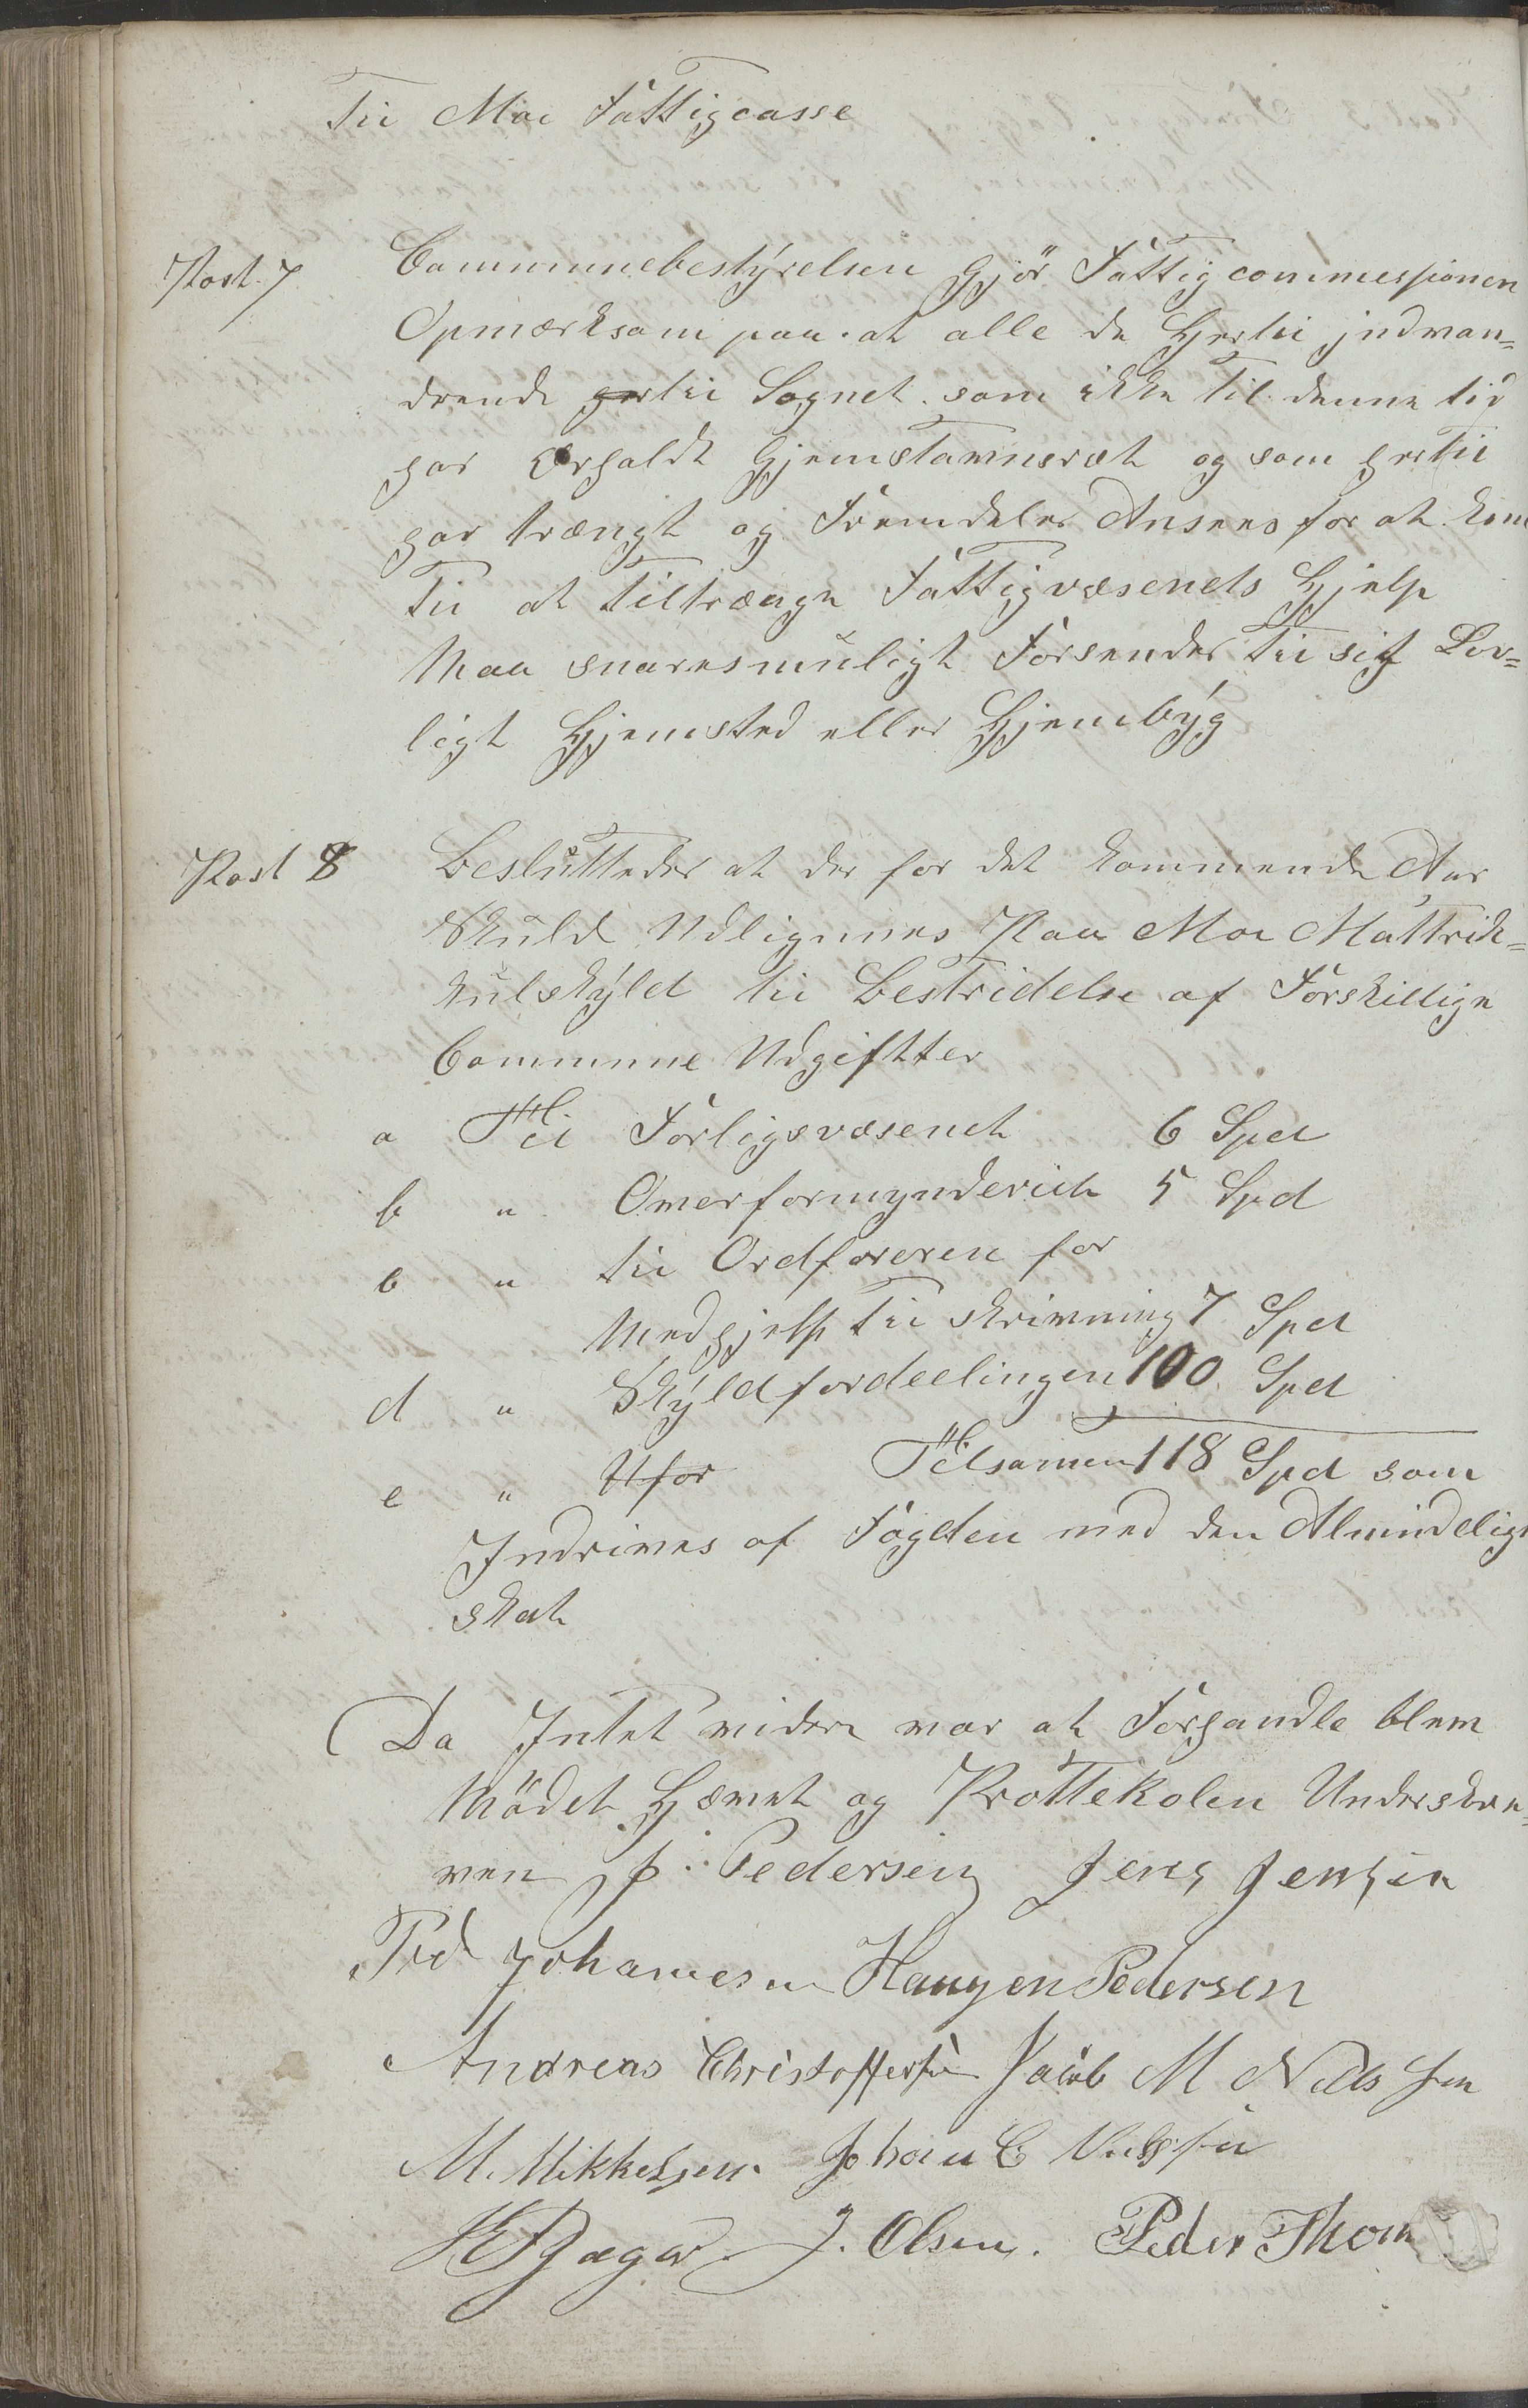 Til Moe Fattigcasse
Post. 7 Communebestyrelsen Gjör Fattigcommessionen
Opmærksom paa. at alle de Hertil jndvan=
drende hertil Sognet. som ikke til denne tid
har Erholdt Hjemstavnsræt og som hertil
har trængt og Fremdeler Ansees for at kom
Til at tiltrænge Fattigvæsenets Hjelp
Maa snaresmuligt Forsendes til sit Lov=
ligt Hjemsted eller Hjembyg
Post 8 Besluttedes at der for det kommende Aar
Skuld Udlignnes Paa Moe Mattrik=
kulskyld til Bestridelse af Forskillige
Commune Udgiftter
a Til Forligsvæsenet 6 Spd
b " Overformynderiet 5 Spd
c " til Ordføreren for
Medhjelp til skrivning 7 Spd
d " Skyldfordeelingen 100 Spd
e " Ufor Tilsamen 118 Spd som
Indrives af Fogden med den Almindelige
skat
Da Intet videre var at Forhandle blev
Mödet Hævet og Prottekolen Underskre=
ven P. Pedersen Jens Jensen
Ped Johannesen Haagen Pedersen
Andreas Christoffersen Jacob M Nilssen
M. Mikkelsen. Johan C Nilssen
J. Olsen. Peder Thom